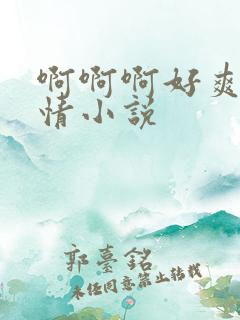 啊啊啊好爽
情小说
郭臺銘
未经同意禁止转载